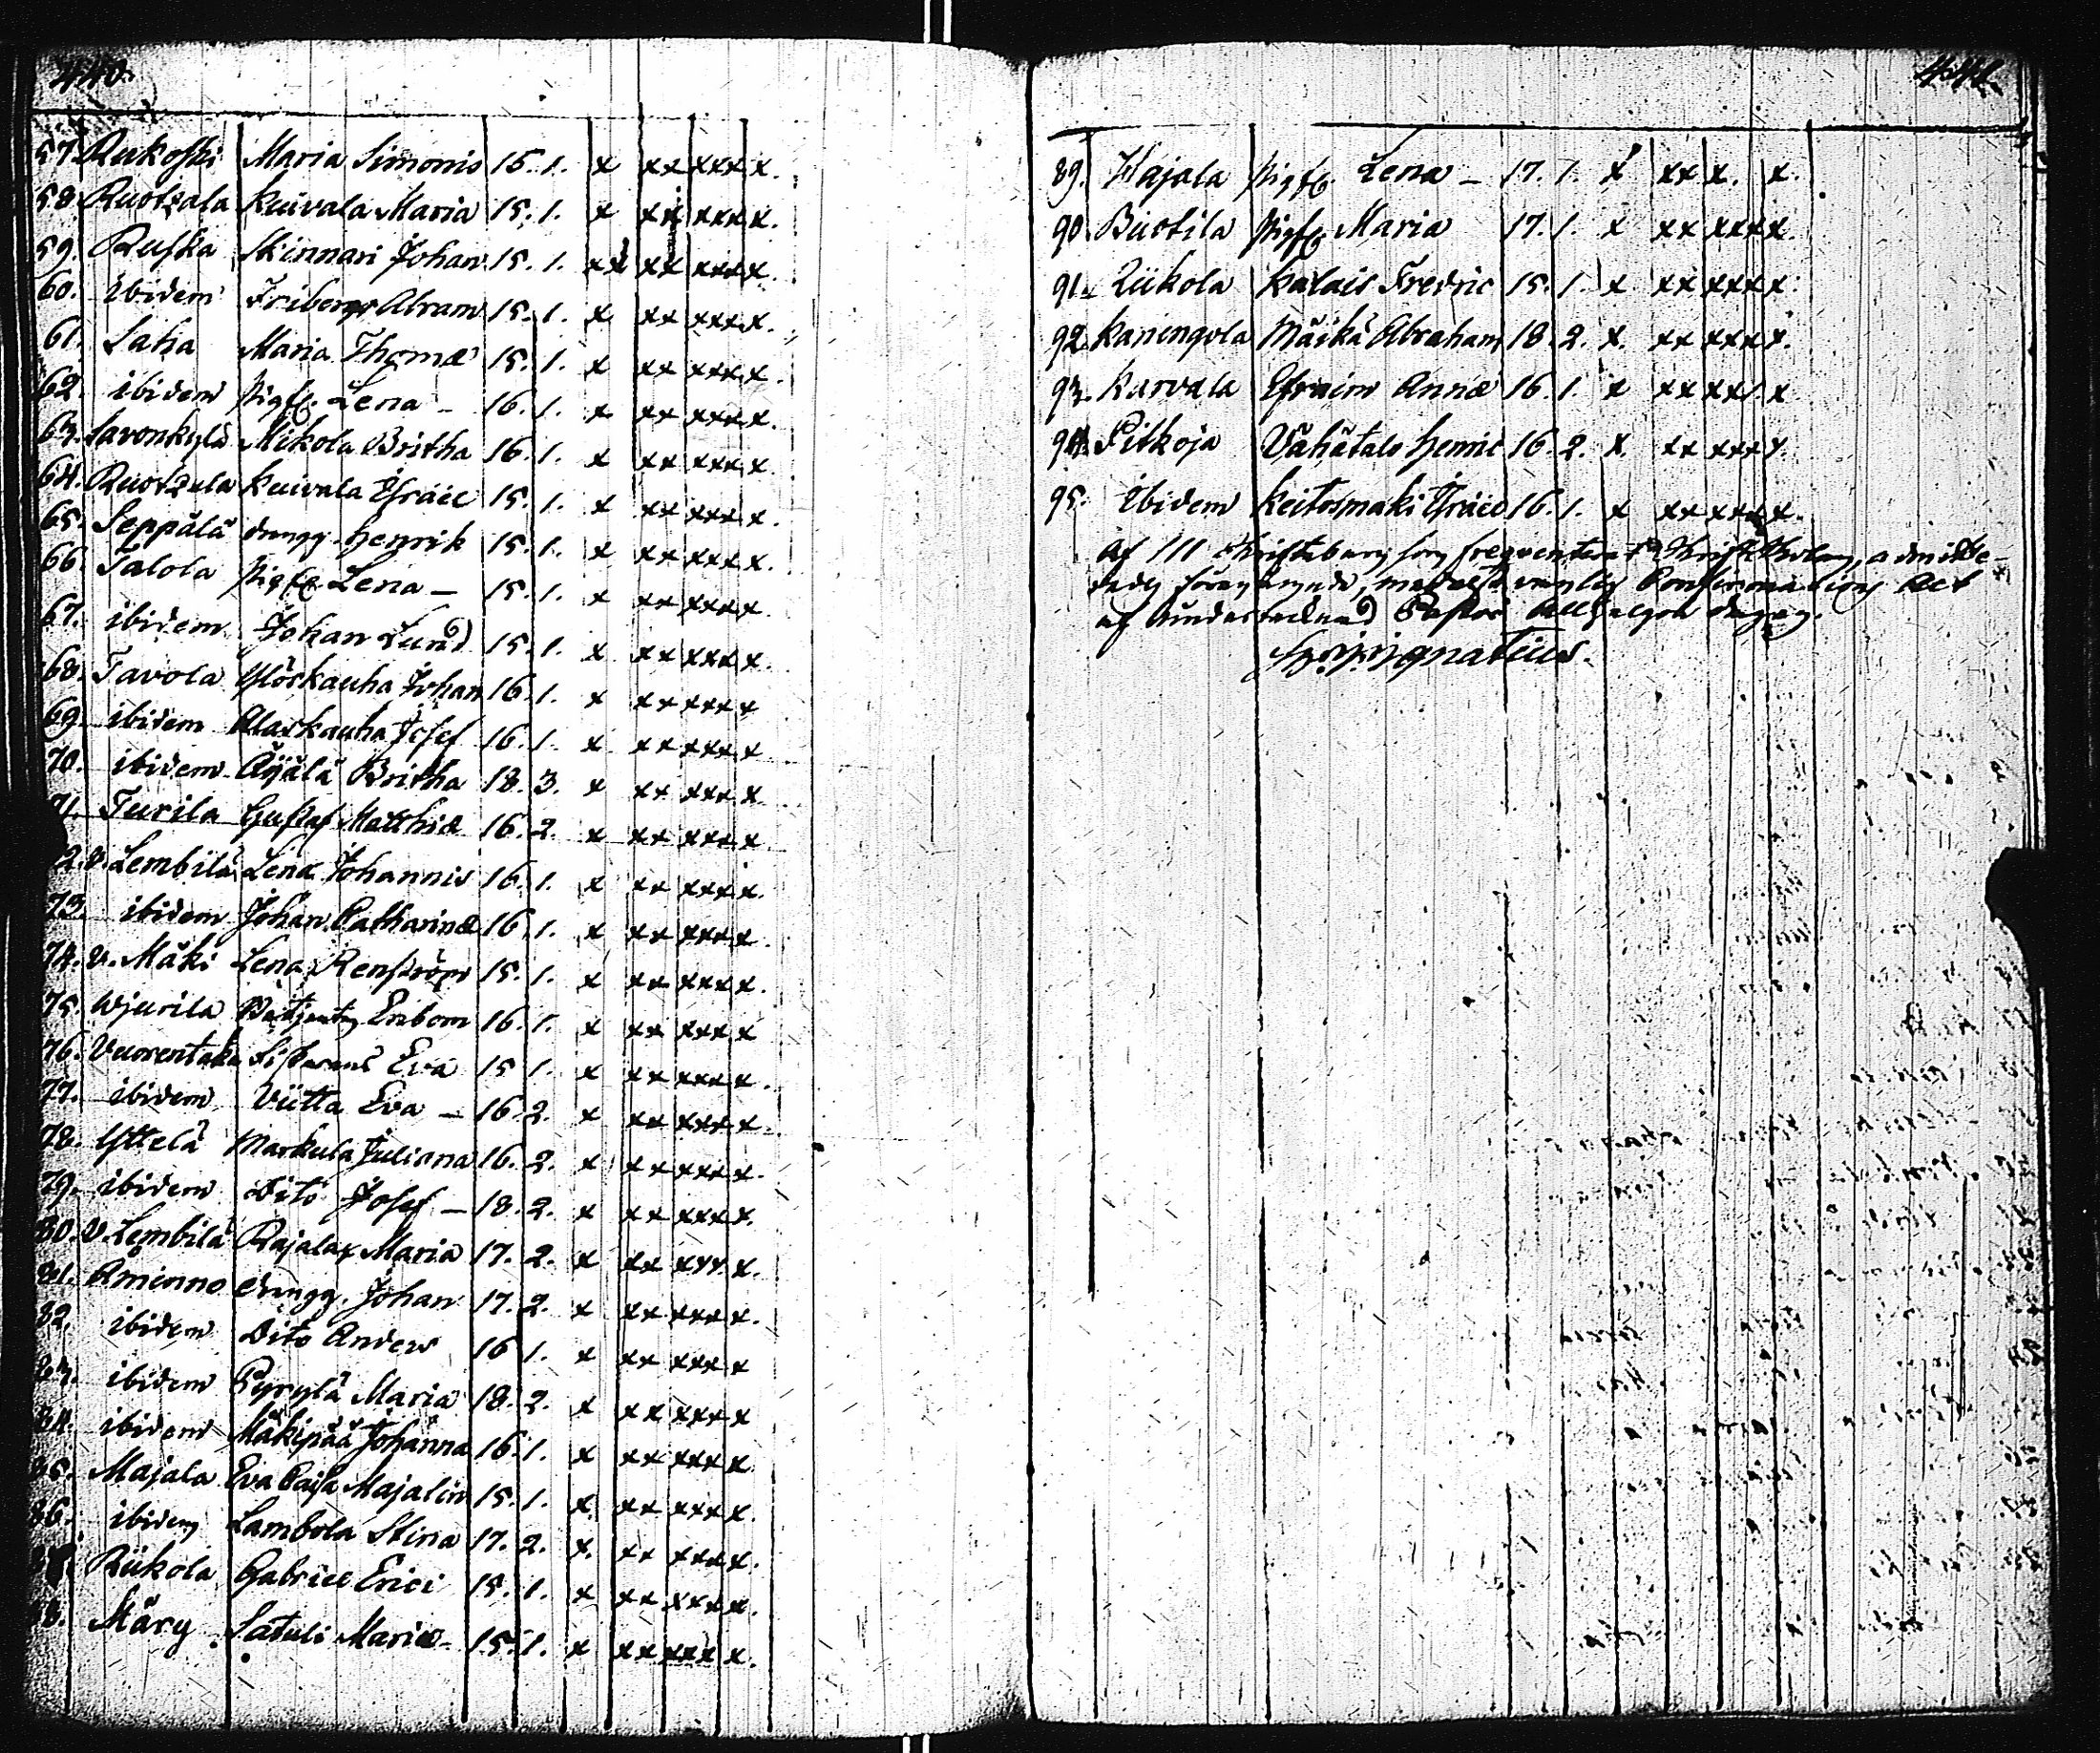 440.
57. Rukoski Maria Simonis 15. 1. x xx xxx x.
58. Ruotzala Kuivala Maria 15. 1. x xx xxx x.
59. Ruska Skinnari Johan 15. 1. xx xx xxx x.
60. Ibidem Fribergs Abram 15. 1. x xx xxx x.
61. Saha Maria Thomæ 15. 1. x xx xxx x.
62. ibidem pigk. Lena – 16. 1. x xx xxx x.
63. Savonkylä Mikola Britha 16. 1. x xx xxx x.
64. Ruotzala Kuivala Israel 15. 1. x xx xxx x.
65. Seppälä drengg. Henrik 15. 1. x xx xxx x.
66. Talola pigk. Lena – 15. 1. x xx xxx x.
67. ibidem Johan Lund 15. 1. x xx xxx x.
68. Tavola Ylöskauha Johan 16. 1. x xx xxx x
69. ibidem Alaskauha Josef 16. 1. x xx xxx x
70. ibidem Äijälä Britha 18. 3. x xx xxx x.
71. Turila Gustaf Matthiæ 16. 2. x xx xxx x.
72. v. Lembilä Lena Johannis 16. 1. x xx xxx x.
73. ibidem Johan Catharinæ 16. 1. x xx xxx x.
74. v. Mäki Lena Renström 15. 1. x xx xxx x.
75. Wjurila Enbom 16. 1. x xx xxx x
76. Vuorentaka Eva 15 1. x xx xxx x.
77. ibidem Viitta Eva – 16. 2. x xx xxx x.
78. Yttelä Markula Juliana 16. 2. x xx xxx x.
79. ibidem Dito Josef – 18. 2. x xx xxx x.
80. v Lembilä Rajalax Maria 17. 2. x xx xxx x.
81. Åminne drengg. Johan 17. 2. x xx xxx x.
82. ibidem Dito Anders 16 1. x xx xxx x
83. ibidem Pyrylä Maria 18. 2. x xx xxx x
84. ibidem Mäkipää Johanna 16. 1. x xx xxx x
85. Majala Eva Caisa Majalin 15. 1. x xx xxx x.
86. ibidem Lambola Stina 17. 2. x. xx xxx x.
Riikola Gabriel Erici 15. 1. x xx xxx x.
88. Märy Satuli Maria – 15. 1. x xx xxx x.
441
89. Wajala pigk. Lena – 17. 1. x xx x. x.
90. Buotila pigk. Maria 17. 1. x xx xxx x.
91. Riikola Kalais Fredric 15. 1. x xx xxx x.
92. Kaningola Mäikä Abraham 18. 2. x. xx xxx x.
93. Karvala Efraim Annæ 16. 1. x xx xx x
94. Pitkoja Vähätalo Henric 16. 2. x. xx xxx x.
95. Ibidem Keitosmaki Israel 16. 1. x xx xxx x.
Af 111 Skriftebarn som freqventerat Skriftskolan, admitte-
rades föregående, medelst vanlig Confirmations Act
af undertecknad Pastor Allhelgon dagen.
Ignatius.